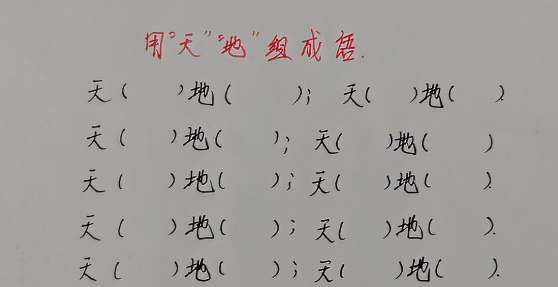 用“天”“地”组成语.
天( )地( ); 天( )地( ).
天( )地( ); 天( )地( )
天( )地( ); 天( )地( ).
天( )地( ); 天( )地( ).
天( )地( ); 天( )地( ).